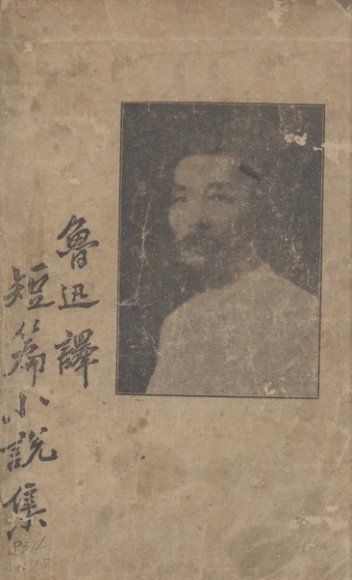 魯迅譯
短篇小說集